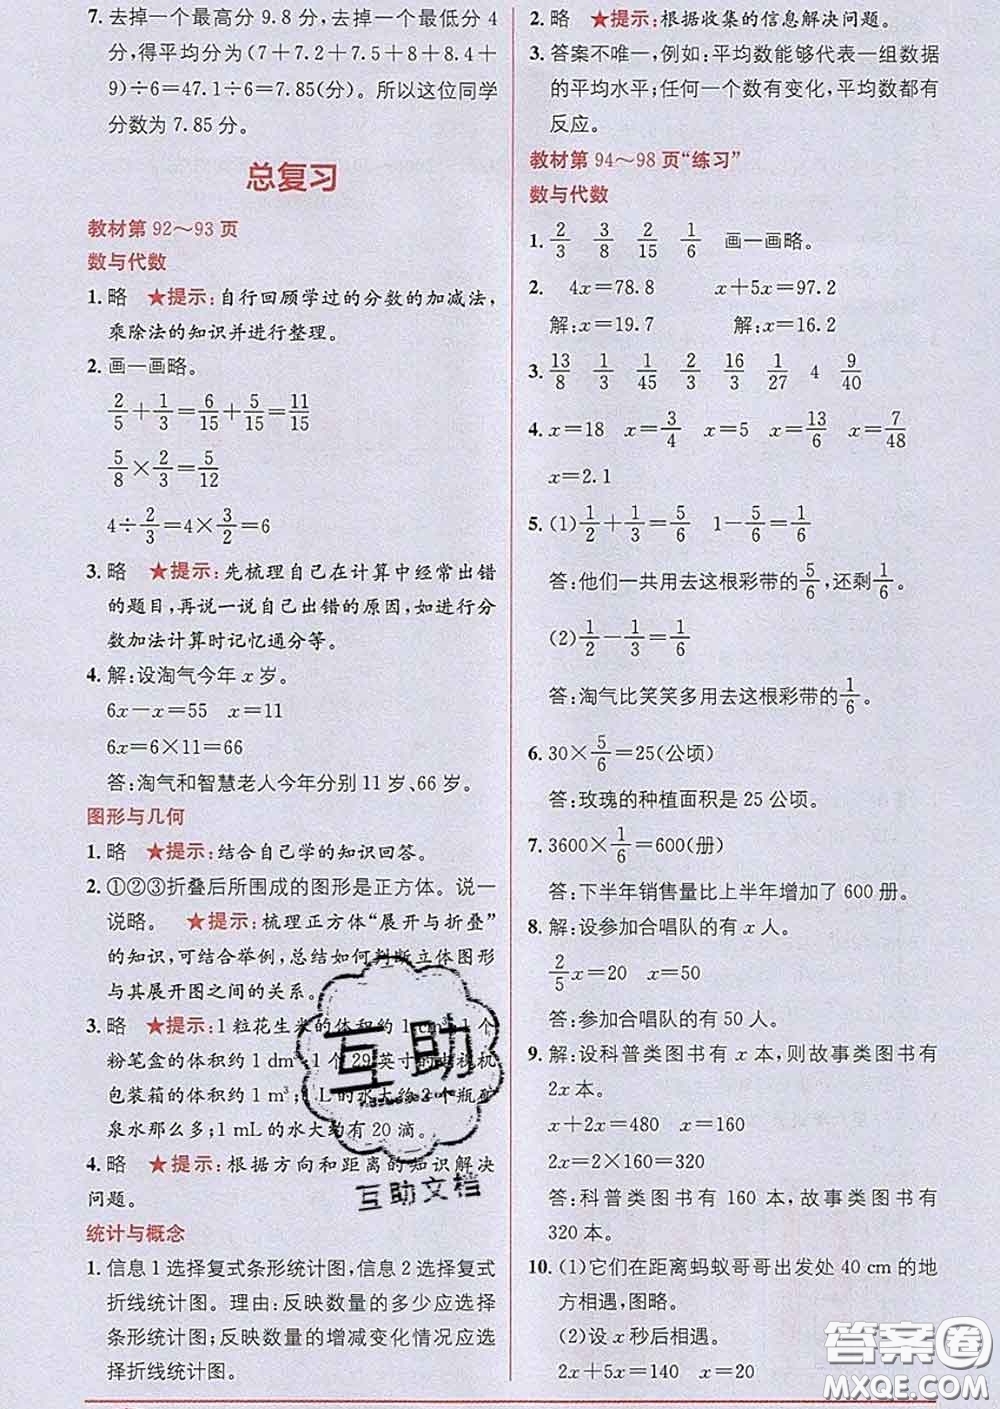 7. 去掉一个最高分 9.8 分,去掉一个最低分 4
分,得平均分为(7+7.2+7.5+8+8.4+
9)÷6=47.1÷6=7.85(分)。所以这位同学
分数为 7.85 分。
总复习
教材第 92～93 页
数与代数
1. 略 ★提示:自行回顾学过的分数的加减法,
乘除法的知识并进行整理。
2. 画一画略。
2/5+1/3=6/15+5/15=11/15
5/8×2/3=5/12
4÷2/3=4×3/2=6
3. 略 ★提示:先梳理自己在计算中经常出错
的题目,再说一说自己出错的原因,如进行分
数加法计算时记忆通分等。
4. 解:设淘气今年 x 岁。
6x−x=55 x=11
6x=6×11=66
答:淘气和智慧老人今年分别 11 岁、66 岁。
图形与几何
1. 略 ★提示:结合自己学的知识回答。
2. ①②③折叠后所围成的图形是正方体。说一
说略。 ★提示:梳理正方体“展开与折叠”
的知识,可结合举例,总结如何判断立体图形
与其展开图之间的关系。
3. 略 ★提示:1 粒花生米的体积约 1 cm³ 1 个
粉笔盒的体积约 1 dm³ 1 个 29 英寸的电视机
包装箱的体积约 1 m³; L 的水大约 2 个瓶矿
泉水那么多;1 mL 的水大约有 20 滴。
4. 略 ★提示:根据方向和距离的知识解决
问题。
统计与概念
1. 信息 1 选择复式条形统计图,信息 2 选择复式
折线统计图。理由:反映数量的多少应选择
条形统计图;反映数量的增减变化情况应选
择折线统计图。
2. 略 ★提示:根据收集的信息解决问题。
3. 答案不唯一,例如:平均数能够代表一组数据
的平均水平;任何一个数有变化,平均数都有
反应。
教材第 94～98 页“练习”
数与代数
1. 2/3 3/8 2/15 1/6 画一画略。
2. 4x=78.8 x+5x=97.2
解:x=19.7 解:x=16.2
3. 13/8 1/3 1/45 2/3 16/3 1/27 4 9/40
4. x=18 x=3/4 x=5 x=13/6 x=7/48
x=2.1
5. (1)1/2+1/3=5/6 1−5/6=1/6
答:他们一共用去这根彩带的5/6,还剩1/6。
(2)1/2−1/3=1/6
答:淘气比笑笑多用去这根彩带的1/6。
6. 30×5/6=25(公顷)
答:玫瑰的种植面积是 25 公顷。
7. 3600×1/6=600(册)
答:下半年销售量比上半年增加了 600 册。
8. 解:设参加合唱队的有 x 人。
2/5x=20 x=50
答:参加合唱队的有 50 人。
9. 解:设科普类图书有 x 本,则故事类图书有
2x 本。
x+2x=480 x=160
2x=2×160=320
答:科普类图书有 160 本,故事类图书有
320 本。
10. (1)它们在距离蚂蚁哥哥出发处 40 cm 的地
方相遇,图略。
(2)设 x 秒后相遇。
2x+5x=140 x=20
互助
互助文档
答案圈
MXQE.COM